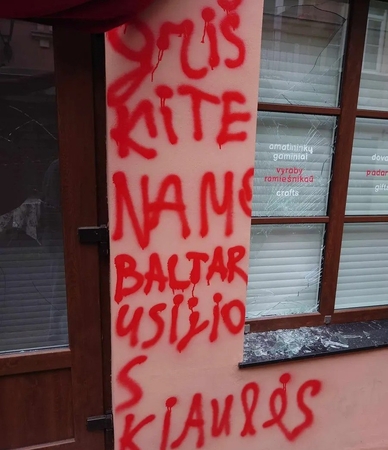 griš
KITE
NAMS
BALTAR
USIJIO
S
KIAULĖS
amatininkų
gaminiai
vyroby
ramieśnikaŭ
crafts
dova
padar
gift